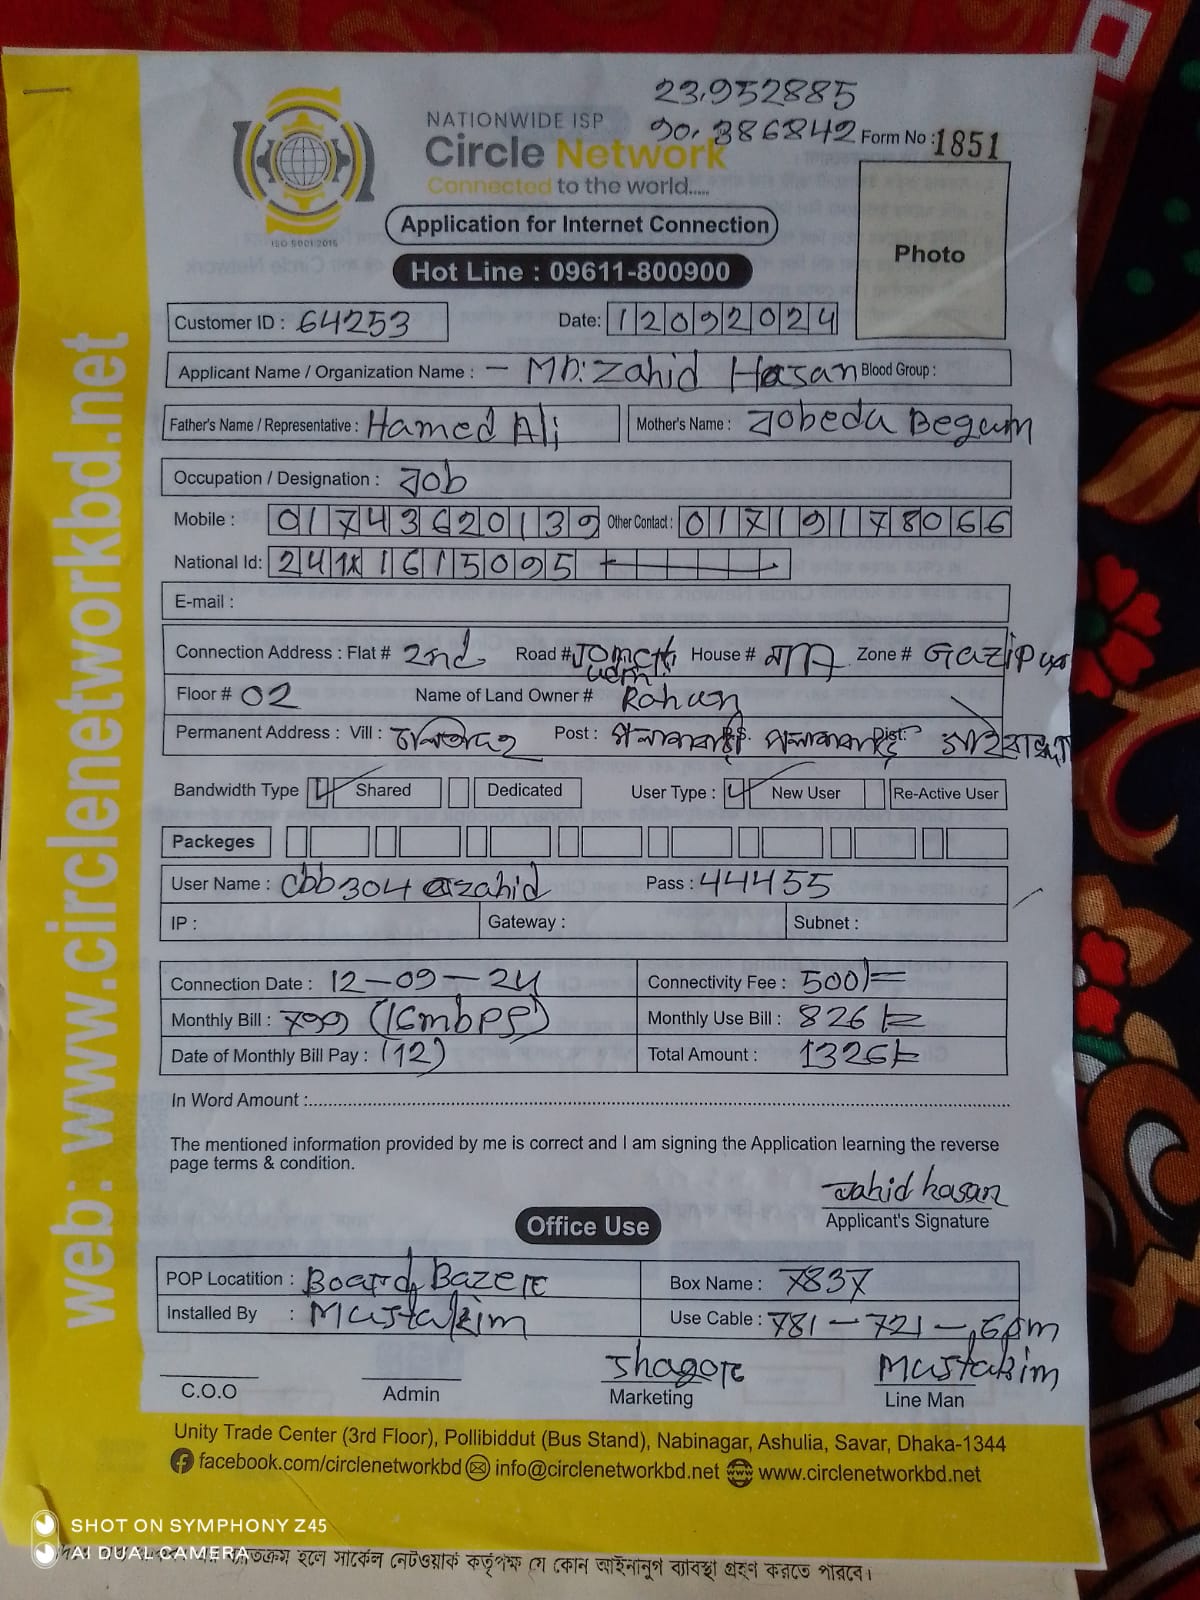 23.952885
90.386842
NATIONWIDE ISP
Circle Network
Connected to the world.....
ISO 9001:2015
Form No : 1851
Application for Internet Connection
Photo
Hot Line : 09611-800900
Customer ID : 64253 Date: 12092024
Applicant Name / Organization Name : - MD: Zahid Hasan Blood Group :
Father's Name / Representative : Hamed Ali Mother's Name : Jobeda Begum
Occupation / Designation : Job
Mobile : 01743620139 Other Contact : 01719178066
National Id: 241 1615095
E-mail :
Connection Address : Flat # 2nd Road # House # Zone # Gazipur
Floor # 02 Name of Land Owner # Rohan
Permanent Address : Vill : Post : P.S. Dist:
Bandwidth Type Shared Dedicated User Type : New User Re-Active User
Packeges
User Name : cbb304 zahid Pass : 44455
IP : Gateway : Subnet :
Connection Date : 12-09-24 Connectivity Fee : 500/=
Monthly Bill : 799 (16mbps) Monthly Use Bill : 826
Date of Monthly Bill Pay : (12) Total Amount : 1326
In Word Amount :
The mentioned information provided by me is correct and I am signing the Application learning the reverse
page terms & condition.
Zahid hasan
Applicant's Signature
Office Use
POP Locatition : Board Bazer Box Name : 7837
Installed By : Mustakim Use Cable : 781-721-60m
Shagor Mustakim
C.O.O Admin Marketing Line Man
Unity Trade Center (3rd Floor), Pollibiddut (Bus Stand), Nabinagar, Ashulia, Savar, Dhaka-1344
facebook.com/circlenetworkbd info@circlenetworkbd.net www.circlenetworkbd.net
web: www.circlenetworkbd.net
SHOT ON SYMPHONY Z45
AI DUAL CAMERA
হলে সার্কেল নেটওয়ার্ক কর্তৃপক্ষ যে কোন আইনানুগ ব্যবস্থা গ্রহণ করতে পারবে।